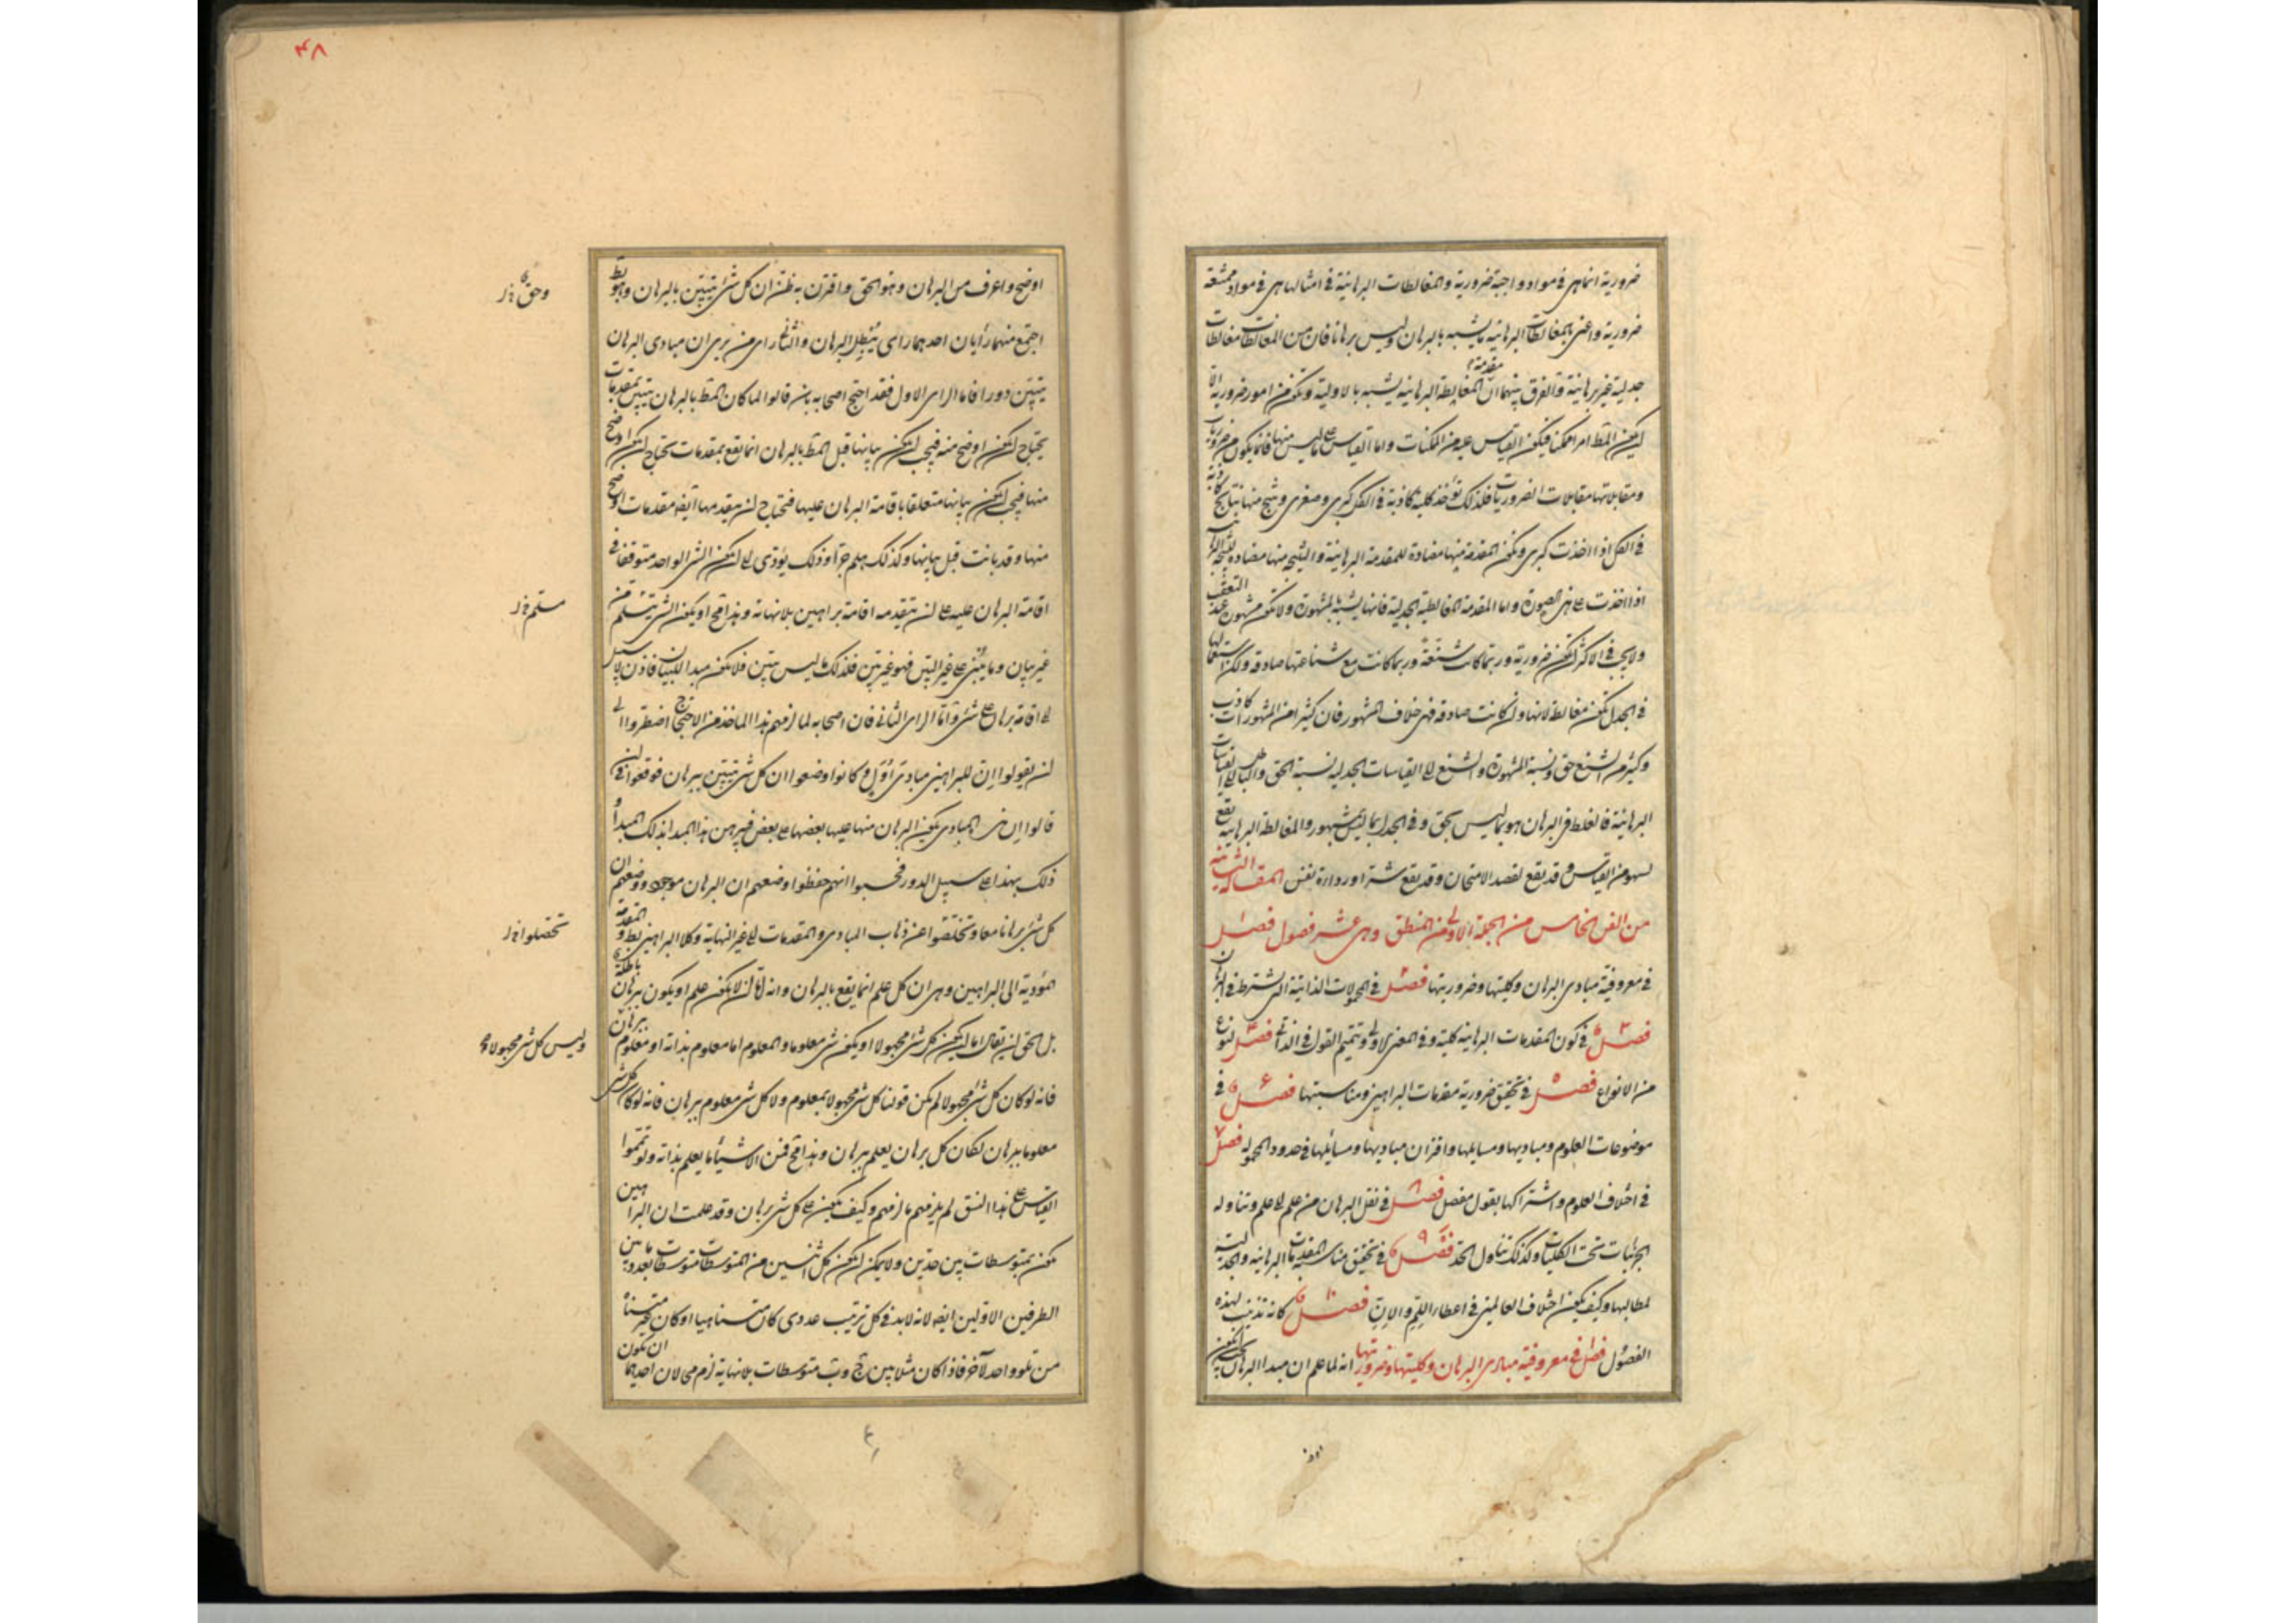 ضرورية انما هى فى مواد واجبة ضرورية والمغالطات البرهانية فى امثالها هى فى مواد ممتنعة
ضرورية واعنى بالمغالطات البرهانية ما يشبه بالبرهان وليس برهانا فان من المغالطات مغالطات
جدلية غير برهانية والفرق بينهما ان المغالطة البرهانية يشبه بالاولية وتكون من امور ضرورية الا
مقدمة
لكون المط امرا ممكنا فيكون القياس عليه من الممكنات واما القياس على ما ليس منها فانما يكون من ضروريات
ومقابلاتها مقابلات الضروريات فلذلك تؤخذ كلية كاذبة فى الكل كبرى وصغرى وينتج منها نتايج كاذبة
فى الكل اذا اخذت كبرى وتكون المقدمة منها مضادة للمقدمة البرهانية والنتيجة منها مضادة للنتيجة
اذا اخذت على هذه الصورة واما المقدمة المغالطية الجدلية فانها يشبه بالمشهورة ولا تكون مشهورة عند التعقب
ولا يجب فى الاكثر ان تكون ضرورية وربما كانت شنعة وربما كانت مع شناعتها صادقة ولكن استعمالها
فى الجدل تكون مغالطة لانها وان كانت صادقة فهى خلاف المشهور فان كثيرا من المشهورات كاذب
وكثير من الشنع حق ونسبة المشهورة والشنع الى القياسات الجدلية نسبة الحق والباطل الى القياسات
البرهانية فالغلط فى البرهان هو بما ليس بحق وفى الجدل بما ليس بمشهور والمغالطة البرهانية يقع
لسهو من القياس وقد يقع لقصد الامتحان وقد يقع شرا ورداءة نفس المقالة الثانية
من الفن الخامس من الجملة الاولى من المنطق وهى عشر فصول فصل ١
فى معروفية مبادى البرهان وكليتها وضروريتها فصل ٢ فى المحمولات الذاتية التى يشترط فى البرهان
فصل ٣ فى كون المقدمات البرهانية كلية وفى المعنى الاولى وتتميم القول فى الذاتى فصل ٤ لنوع
من الانواع فصل ٥ فى تحقيق ضرورية مقدمات البراهين ومناسبتها فصل ٦ فى
موضوعات العلوم ومباديها ومسايلها واقتران مباديها ومسائلها فى حدود المحمولة فصل ٧
فى اختلاف العلوم واشتراكها بقول مفصل فصل ٨ فى نقل البرهان من علم الى علم وتناوله
الجزئيات تحت الكليات وكذلك تناول الحد فصل ٩ فى تحقيق مناسبة المقدمات البرهانية والجدلية
لمطالبها وكيف يكون اختلاف العالمين فى اعطاء اللم والان فصل ١٠ كانه تذنيب لهذه
الفصول فصل ١ فى معروفية مبادى البرهان وكليتها وضروريتها انه لما علم ان مبدا البرهان يجب ان يكون
٤٨
اوضح واعرف من البرهان وهو الحق واقترن به ظن ان كل شئ يتبين بالبرهان وهو بط
وحق
اجتمع منهما رأيان احدهما رأى يبطل البرهان والثانى رأى من يرى ان مبادى البرهان
يتبين دورا فاما الراى الاول فقد احتج اصحابه بان قالوا لما كان المط بالبرهان يتبين بمقدمات
يحتاج ان يكون اوضح منه فيجب ان يكون بيانها قبل المط بالبرهان انما يقع بمقدمات يحتاج ان يكون اوضح
منها فيجب ان يكون بيانها متعلقا باقامة البرهان عليها فتحتاج ان يتقدمها ايضا مقدمات اوضح
منها وقد بانت قبل بيانها وكذلك هلم جرا وذلك يؤدى الى ان يكون الشئ الواحد متوقفا فى
اقامة البرهان عليه على ان يتقدمه اقامة براهين بلا نهاية وهذا مح او يكون الشئ يتسلم من
مسلم
غير بيان وما يبنى على غير البين فهو غير بين فلذلك ما ليس ببين فلا يكون مبدا للبيان فاذن لا سبيل
الى اقامة برهان على شئ واما الراى الثانى فان اصحابه لما لزمهم هذا الماخذ من الاحتجاج اضطروا الى
ان يقولوا ان للبراهين مبادى اول وكانوا وضعوا ان كل شئ يتبين ببرهان فوقعوا فى ان
قالوا ان هذه المبادى يكون البرهان منها عليها بعضها على بعض فيبرهن هذا المبدا بذلك المبدأ و
ذلك بهذا على سبيل الدور فحسبوا انهم حفظوا وضعهم ان البرهان موجود ووضعهم ان
كل شئ برهانا معا وتخلصوا عن ذهاب المبادى والمقدمات الى غير النهاية وكلا البراهين بط والمقدمة
تحصلوا
المؤدية الى البراهين وهى ان كل علم انما يقع بالبرهان وانه اما ان لا يكون علم او يكون ببرهان باطلة
بل الحق ان يقال اما ان يكون كل شئ مجهولا او يكون شئ معلوما والمعلوم اما معلوم بذاته او معلوم ببرهان
وليس كل شئ مجهولا
فانه لو كان كل شئ مجهولا لم يكن قولنا كل شئ مجهولا بمعلوم ولا كل شئ معلوم ببرهان فانه لو كان كل شئ
معلوما ببرهان لكان كل برهان يعلم ببرهان وهذا مح فمن الاشياء ما يعلم بذاته ولو تمموا
القياس على هذا النسق لم يلزمهم ما لزمهم وكيف يكون على كل شئ برهان وقد علمت ان البراهين
يكون بمتوسطات بين حدين ولا يمكن ان يكون كل اثنين من المتوسطات متوسطات بعدد ما بين
الطرفين الاولين ايضا لانه لا بد فى كل ترتيب عددى كان متناهيا او كان غير متناه
من تلو واحد لآخر فاذا كان مثلا بين ج وب متوسطات بلا نهاية لزم مح لان احدهما ان يكون